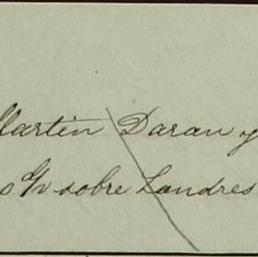 Martin Daran y
o G/v sobre Londres